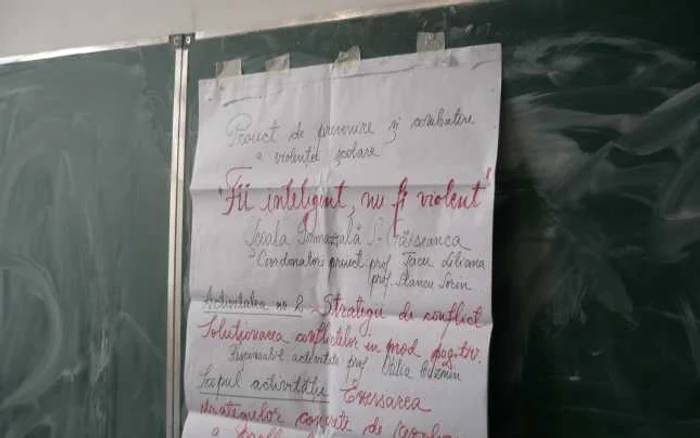 Proiect de prevenire și combatere
a violenței școlare
"Fii inteligent, nu fi violent"
Școala Gimnazială
Coordonatori proiect prof.
prof. Stancu Sorin
Activitatea nr 2 Strategii de conflict
Soluționarea conflictelor în mod pozitiv.
Responsabil activitate prof
Scopul activității Exersarea
concrete de
a